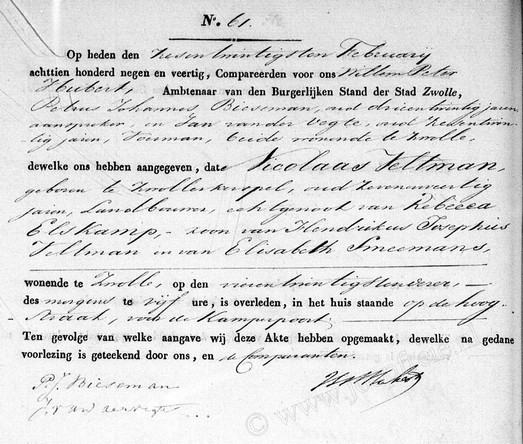 No. 61.
Op heden den zesentwintigsten February
achttien honderd negen en veertig, Compareerden voor ons Willem Peter
Hubert, Ambtenaar van den Burgerlijken Stand der Stad Zwolle,
Petrus Johannes Bieseman, oud drieentwintig jaren
aanspreker en Jan van der Vegte, oud zesentwin-
tig jaren, Voerman, beide wonende te Zwolle,
dewelke ons hebben aangegeven, dat Nicolaas Veltman,
geboren te Zwollerkerspel, oud zevenenveertig
jaren, Landbouwer, echtgenoot van Rebecca
Elskamp, zoon van Hendrikus Josephus
Veltman en van Elisabeth Smeemans,
wonende te Zwolle, op den vierentwintigsten dezer,
des morgens te vijf ure, is overleden, in het huis staande op de Hoog-
straat, voor de Kamperpoort
Ten gevolge van welke aangave wij deze Akte hebben opgemaakt, dewelke na gedane
voorlezing is geteekend door ons, en de Comparanten.
P. J. Bieseman
J. van der vegte
©